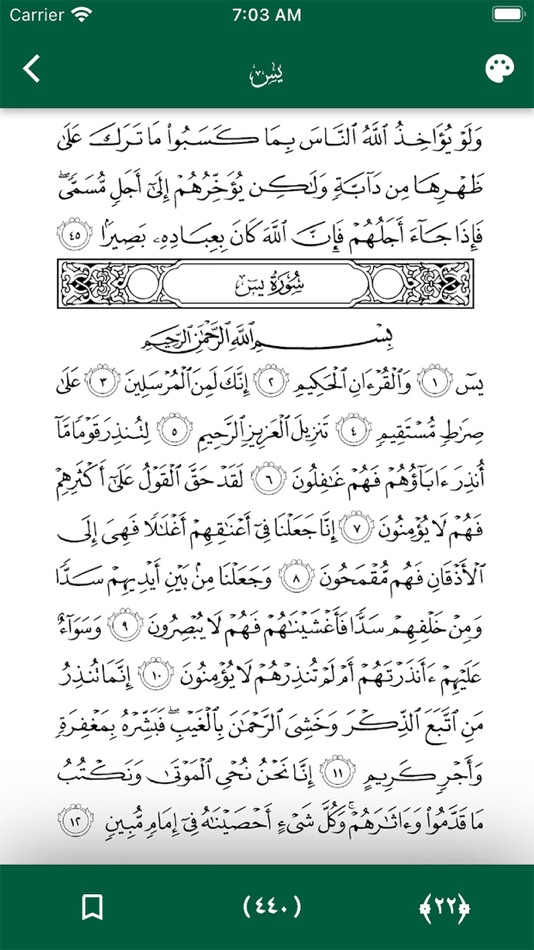 Carrier 7:03 AM
يس
وَلَوْ يُؤَاخِذُ ٱللَّهُ ٱلنَّاسَ بِمَا كَسَبُوا۟ مَا تَرَكَ عَلَىٰ
ظَهْرِهَا مِن دَآبَّةٍ وَلَـٰكِن يُؤَخِّرُهُمْ إِلَىٰٓ أَجَلٍ مُّسَمًّى ۖ
فَإِذَا جَآءَ أَجَلُهُمْ فَإِنَّ ٱللَّهَ كَانَ بِعِبَادِهِۦ بَصِيرًۢا ٤٥
سُورَةُ يسٓ
بِسْمِ ٱللَّهِ ٱلرَّحْمَـٰنِ ٱلرَّحِيمِ
يسٓ ١ وَٱلْقُرْءَانِ ٱلْحَكِيمِ ٢ إِنَّكَ لَمِنَ ٱلْمُرْسَلِينَ ٣ عَلَىٰ
صِرَٰطٍ مُّسْتَقِيمٍ ٤ تَنزِيلَ ٱلْعَزِيزِ ٱلرَّحِيمِ ٥ لِتُنذِرَ قَوْمًا مَّآ
أُنذِرَ ءَابَآؤُهُمْ فَهُمْ غَـٰفِلُونَ ٦ لَقَدْ حَقَّ ٱلْقَوْلُ عَلَىٰٓ أَكْثَرِهِمْ
فَهُمْ لَا يُؤْمِنُونَ ٧ إِنَّا جَعَلْنَا فِىٓ أَعْنَـٰقِهِمْ أَغْلَـٰلًا فَهِىَ إِلَى
ٱلْأَذْقَانِ فَهُم مُّقْمَحُونَ ٨ وَجَعَلْنَا مِنۢ بَيْنِ أَيْدِيهِمْ سَدًّا
وَمِنْ خَلْفِهِمْ سَدًّا فَأَغْشَيْنَـٰهُمْ فَهُمْ لَا يُبْصِرُونَ ٩ وَسَوَآءٌ
عَلَيْهِمْ ءَأَنذَرْتَهُمْ أَمْ لَمْ تُنذِرْهُمْ لَا يُؤْمِنُونَ ١٠ إِنَّمَا تُنذِرُ
مَنِ ٱتَّبَعَ ٱلذِّكْرَ وَخَشِىَ ٱلرَّحْمَـٰنَ بِٱلْغَيْبِ ۖ فَبَشِّرْهُ بِمَغْفِرَةٍ
وَأَجْرٍ كَرِيمٍ ١١ إِنَّا نَحْنُ نُحْىِ ٱلْمَوْتَىٰ وَنَكْتُبُ
مَا قَدَّمُوا۟ وَءَاثَـٰرَهُمْ ۚ وَكُلَّ شَىْءٍ أَحْصَيْنَـٰهُ فِىٓ إِمَامٍ مُّبِينٍ ١٢
(٤٤٠) ﴿٢٢﴾